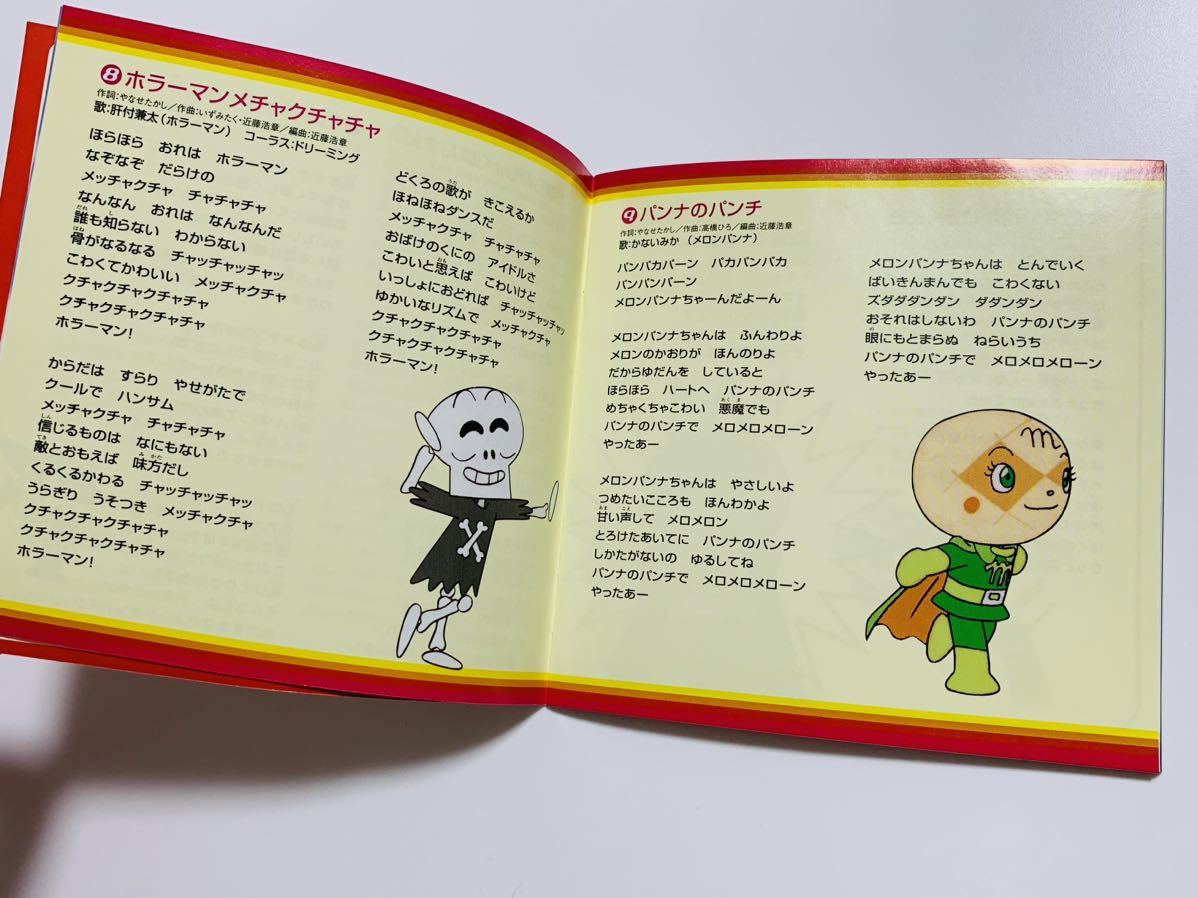 8 ホラーマンメチャクチャチャ
作詞:やなせたかし/作曲:いずみたく・近藤浩章/編曲:近藤浩章
歌:肝付兼太(ホラーマン) コーラス:ドリーミング
ほらほら おれは ホラーマン
なぞなぞ だらけの
メッチャクチャ チャチャチャ
なんなん おれは なんなんだ
誰も知らない わからない
骨がなるなる チャッチャッチャッ
こわくてかわいい メッチャクチャ
クチャクチャクチャチャ
クチャクチャクチャチャ
ホラーマン!
からだは すらり やせがたで
クールで ハンサム
メッチャクチャ チャチャチャ
信じるものは なにもない
敵とおもえば 味方だし
くるくるかわる チャッチャッチャッ
うらぎり うそつき メッチャクチャ
クチャクチャクチャチャ
クチャクチャクチャチャ
ホラーマン!
どくろの歌が きこえるか
ほねほねダンスだ
メッチャクチャ チャチャチャ
おばけのくにの アイドルさ
こわいと思えば こわいけど
いっしょにおどれば チャッチャッチャッ
ゆかいなリズムで メッチャクチャ
クチャクチャクチャチャ
クチャクチャクチャチャ
ホラーマン!
9 パンナのパンチ
作詞:やなせたかし/作曲:高橋ひろ/編曲:近藤浩章
歌:かないみか(メロンパンナ)
パンパカパーン パカパンパカ
パンパンパーン
メロンパンナちゃーんだよーん
メロンパンナちゃんは ふんわりよ
メロンのかおりが ほんのりよ
だからゆだんを していると
ほらほら ハートへ パンナのパンチ
めちゃくちゃこわい 悪魔でも
パンナのパンチで メロメロメローン
やったあー
メロンパンナちゃんは やさしいよ
つめたいこころも ほんわかよ
甘い声して メロメロン
とろけたあいてに パンナのパンチ
しかたがないの ゆるしてね
パンナのパンチで メロメロメローン
やったあー
メロンパンナちゃんは とんでいく
ばいきんまんでも こわくない
ズダダダンダン ダダンダン
おそれはしないわ パンナのパンチ
眼にもとまらぬ ねらいうち
パンナのパンチで メロメロメローン
やったあー
m
m